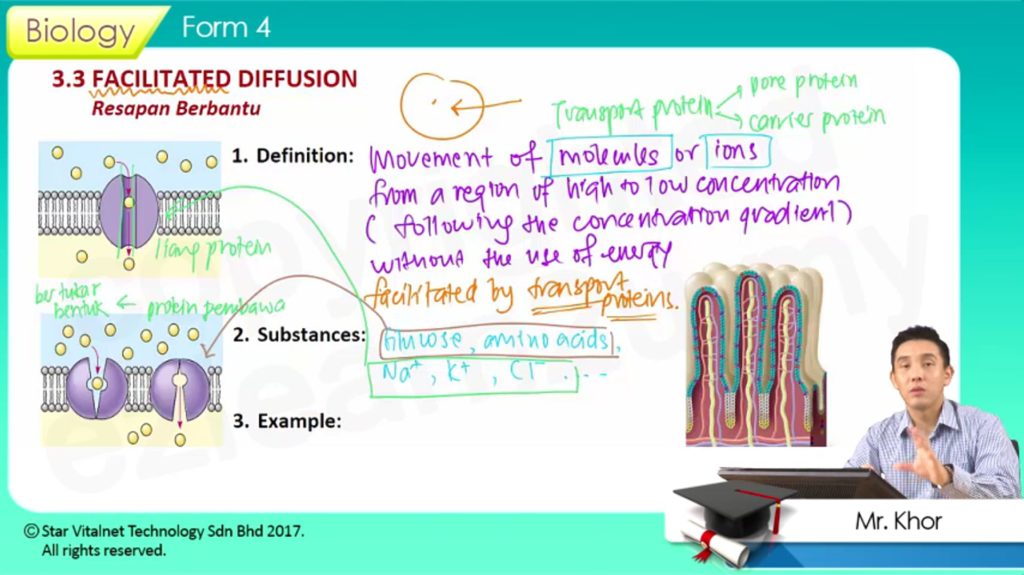 Biology
Form 4
3.3 FACILITATED DIFFUSION
Resapan Berbantu
Transport protein
pore protein
carrier protein
1. Definition: Movement of molecules or ions
from a region of high to low concentration
(following the concentration gradient)
without the use of energy
facilitated by transport proteins.
liang protein
bertukar bentuk ← protein pembawa
2. Substances: Glucose, amino acids,
Na+, K+, Cl- ....
3. Example:
© Star Vitalnet Technology Sdn Bhd 2017.
All rights reserved.
Mr. Khor